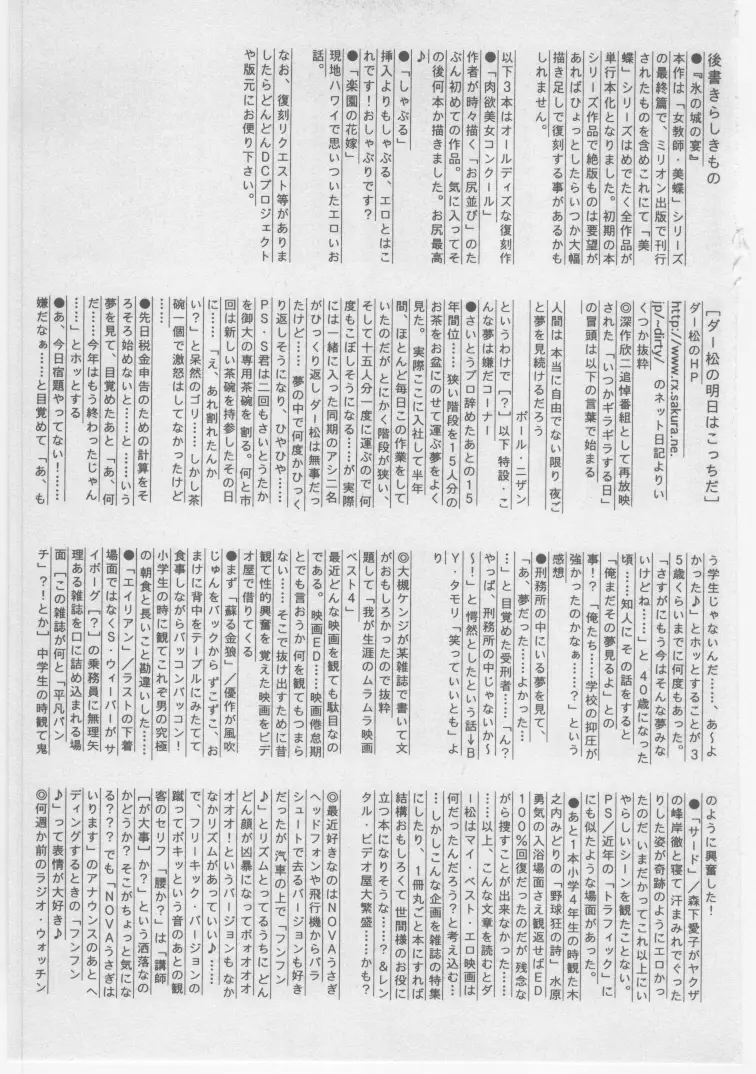 後書きらしきもの
●『氷の城の宴』
本作は「女教師・美蝶」シリーズ
の最終篇で、ミリオン出版で刊行
されたものを含めこれにて「美
蝶」シリーズはめでたく全作品が
単行本化となりました。初期の本
シリーズ作品で絶版ものは要望が
あればひょっとしたらいつか大幅
描き足しで復刻する事があるかも
しれません。
以下3本はオールディズな復刻作
●「肉欲美女コンクール」
作者が時々描く「お尻並び」のた
ぶん初めての作品。気に入ってそ
の後何本か描きました。お尻最高
♪
●「しゃぶる」
挿入よりもしゃぶる、エロとはこ
れです！おしゃぶりです？
●「楽園の花嫁」
現地ハワイで思いついたエロいお
話。
なお、復刻リクエスト等がありま
したらどんどんDCプロジェクト
や版元にお便り下さい。
[ダー松の明日はこっちだ]
ダー松のHP
http://www.rx.sakura.ne.
jp/~dirty/ のネット日記よりい
くつか抜粋
◎深作欣二追悼番組として再放映
された「いつかギラギラする日」
の冒頭は以下の言葉で始まる
人間は 本当に自由でない限り 夜ご
と夢を見続けるだろう
ポール・ニザン
というわけで[？]以下 特設・こ
んな夢は嫌だコーナー
●さいとうプロ辞めたあとの15
年間位……狭い階段を15人分の
お茶をお盆にのせて運ぶ夢をよく
見た。実際ここに入社して半年
間、ほとんど毎日この作業をして
いたのだが とにかく階段が狭い、
そして十五人分一度に運ぶので何
度もこぼしそうになる……が 実際
には一緒に入った同期のアシ二名
がひっくり返しダー松は無事だっ
たけど…… 夢の中で何度かひっく
り返しそうになり、ひやひや……
PS・S君は二回もさいとうたか
を御大の専用茶碗を 割る。何と市
回は新しい茶碗を持参したその日
に……「え、あれ割れたんか
い？」と呆然のゴリ……しかし茶
碗一個で激怒はしてなかったけど
●先日税金申告のための計算をそ
ろそろ始めないと……と……いう
夢を見て、目覚めたあと「あ、何
だ……今年はもう終わったじゃん
……」とホッとする
●あ、今日宿題やってない！……
嫌だなぁ……と目覚めて「あ、も
う学生じゃないんだ……、あ〜よ
かった♪」とホッとすることが 3
5歳くらいまでに何度もあった。
「さすがにもう今はそんな夢みな
いけどね……」と 40歳になった
頃……知人に その話をすると
「俺まだその夢見るよ」との
事！？「俺たち……学校の抑圧が
強かったのかなぁ……？」という
感想
●刑務所の中にいる夢を見て、
「あ、夢だった……よかった…
…」と目覚めた受刑者……「ん？
やっぱ、刑務所の中じゃないか〜
〜！」と愕然としたという話→B
Y・タモリ「笑っていいとも」よ
り
◎大槻ケンジが某雑誌で書いて文
がおもしろかったので抜粋
題して「我が生涯のムラムラ映画
ベスト4」
最近どんな映画を観ても駄目なの
である。映画ED……映画倦怠期
とでも言おうか 何を観てもつまら
ない……そこで抜け出すために昔
観て性的興奮を覚えた映画をビデ
オ屋で借りてくる
●まず「蘇る金狼」／優作が風吹
じゅんをバックからずこずこ、お
まけに背中をテーブルにみたてて
食事しながらバッコンバッコン！
小学生の時に観てこれぞ男の究極
の朝食と長いこと勘違いした……
●「エイリアン」／ラストの下着
場面ではなくS・ウィーバーがサ
イボーグ[？]の乗務員に無理矢
理ある雑誌を口に詰め込まれる場
面 [この雑誌が何と「平凡パン
チ」？！とか] 中学生の時観て鬼
のように興奮した！
●「サード」／森下愛子がヤクザ
の峰岸徹と寝て 汗まみれでぐった
りした姿が奇跡のようにエロかっ
たのだ いまだかってこれ以上にい
やらしいシーンを観たことない。
PS／近年の「トラフィック」に
にも似たような場面があった。
●あと1本小学4年生の時観た木
之内みどりの「野球狂の詩」水原
勇気の入浴場面さえ観返せばED
100％回復だったのだが 残念な
がら捜すことが出来なかった……
……以上、こんな文章を読むとダ
ー松はマイ・ベスト・エロ映画は
何だったんだろう？と考え込む…
…しかしこんな企画を雑誌の特集
にしたり、1冊丸ごと本にすれば
結構おもしろくて 世間様のお役に
立つ本になりそうな……？＆レン
タル・ビデオ屋大繁盛……かも？
◎最近好きなのはNOVAうさぎ
ヘッドフォンや飛行機からパラ
シュートで去るバージョンも好き
だったが 汽車の上で「フンフン
♪」とリズムとってるうちに どん
どん顔が凶暴になってボォオオオ
オオオ！というバージョンもなか
なかリズムがあっていい♪……
で、フリーキック・バージョンの
蹴ってボキッという音のあとの観
客のセリフ「腰か？」は「講師
[が大事]か？」という洒落なの
かどうか？そこがちょっと気にな
る？？？でも「NOVAうさぎは
いります」のアナウンスのあと ヘ
ディングするときの「フンフン
♪」って表情が大好き♪
◎何週か前のラジオ・ウォッチン